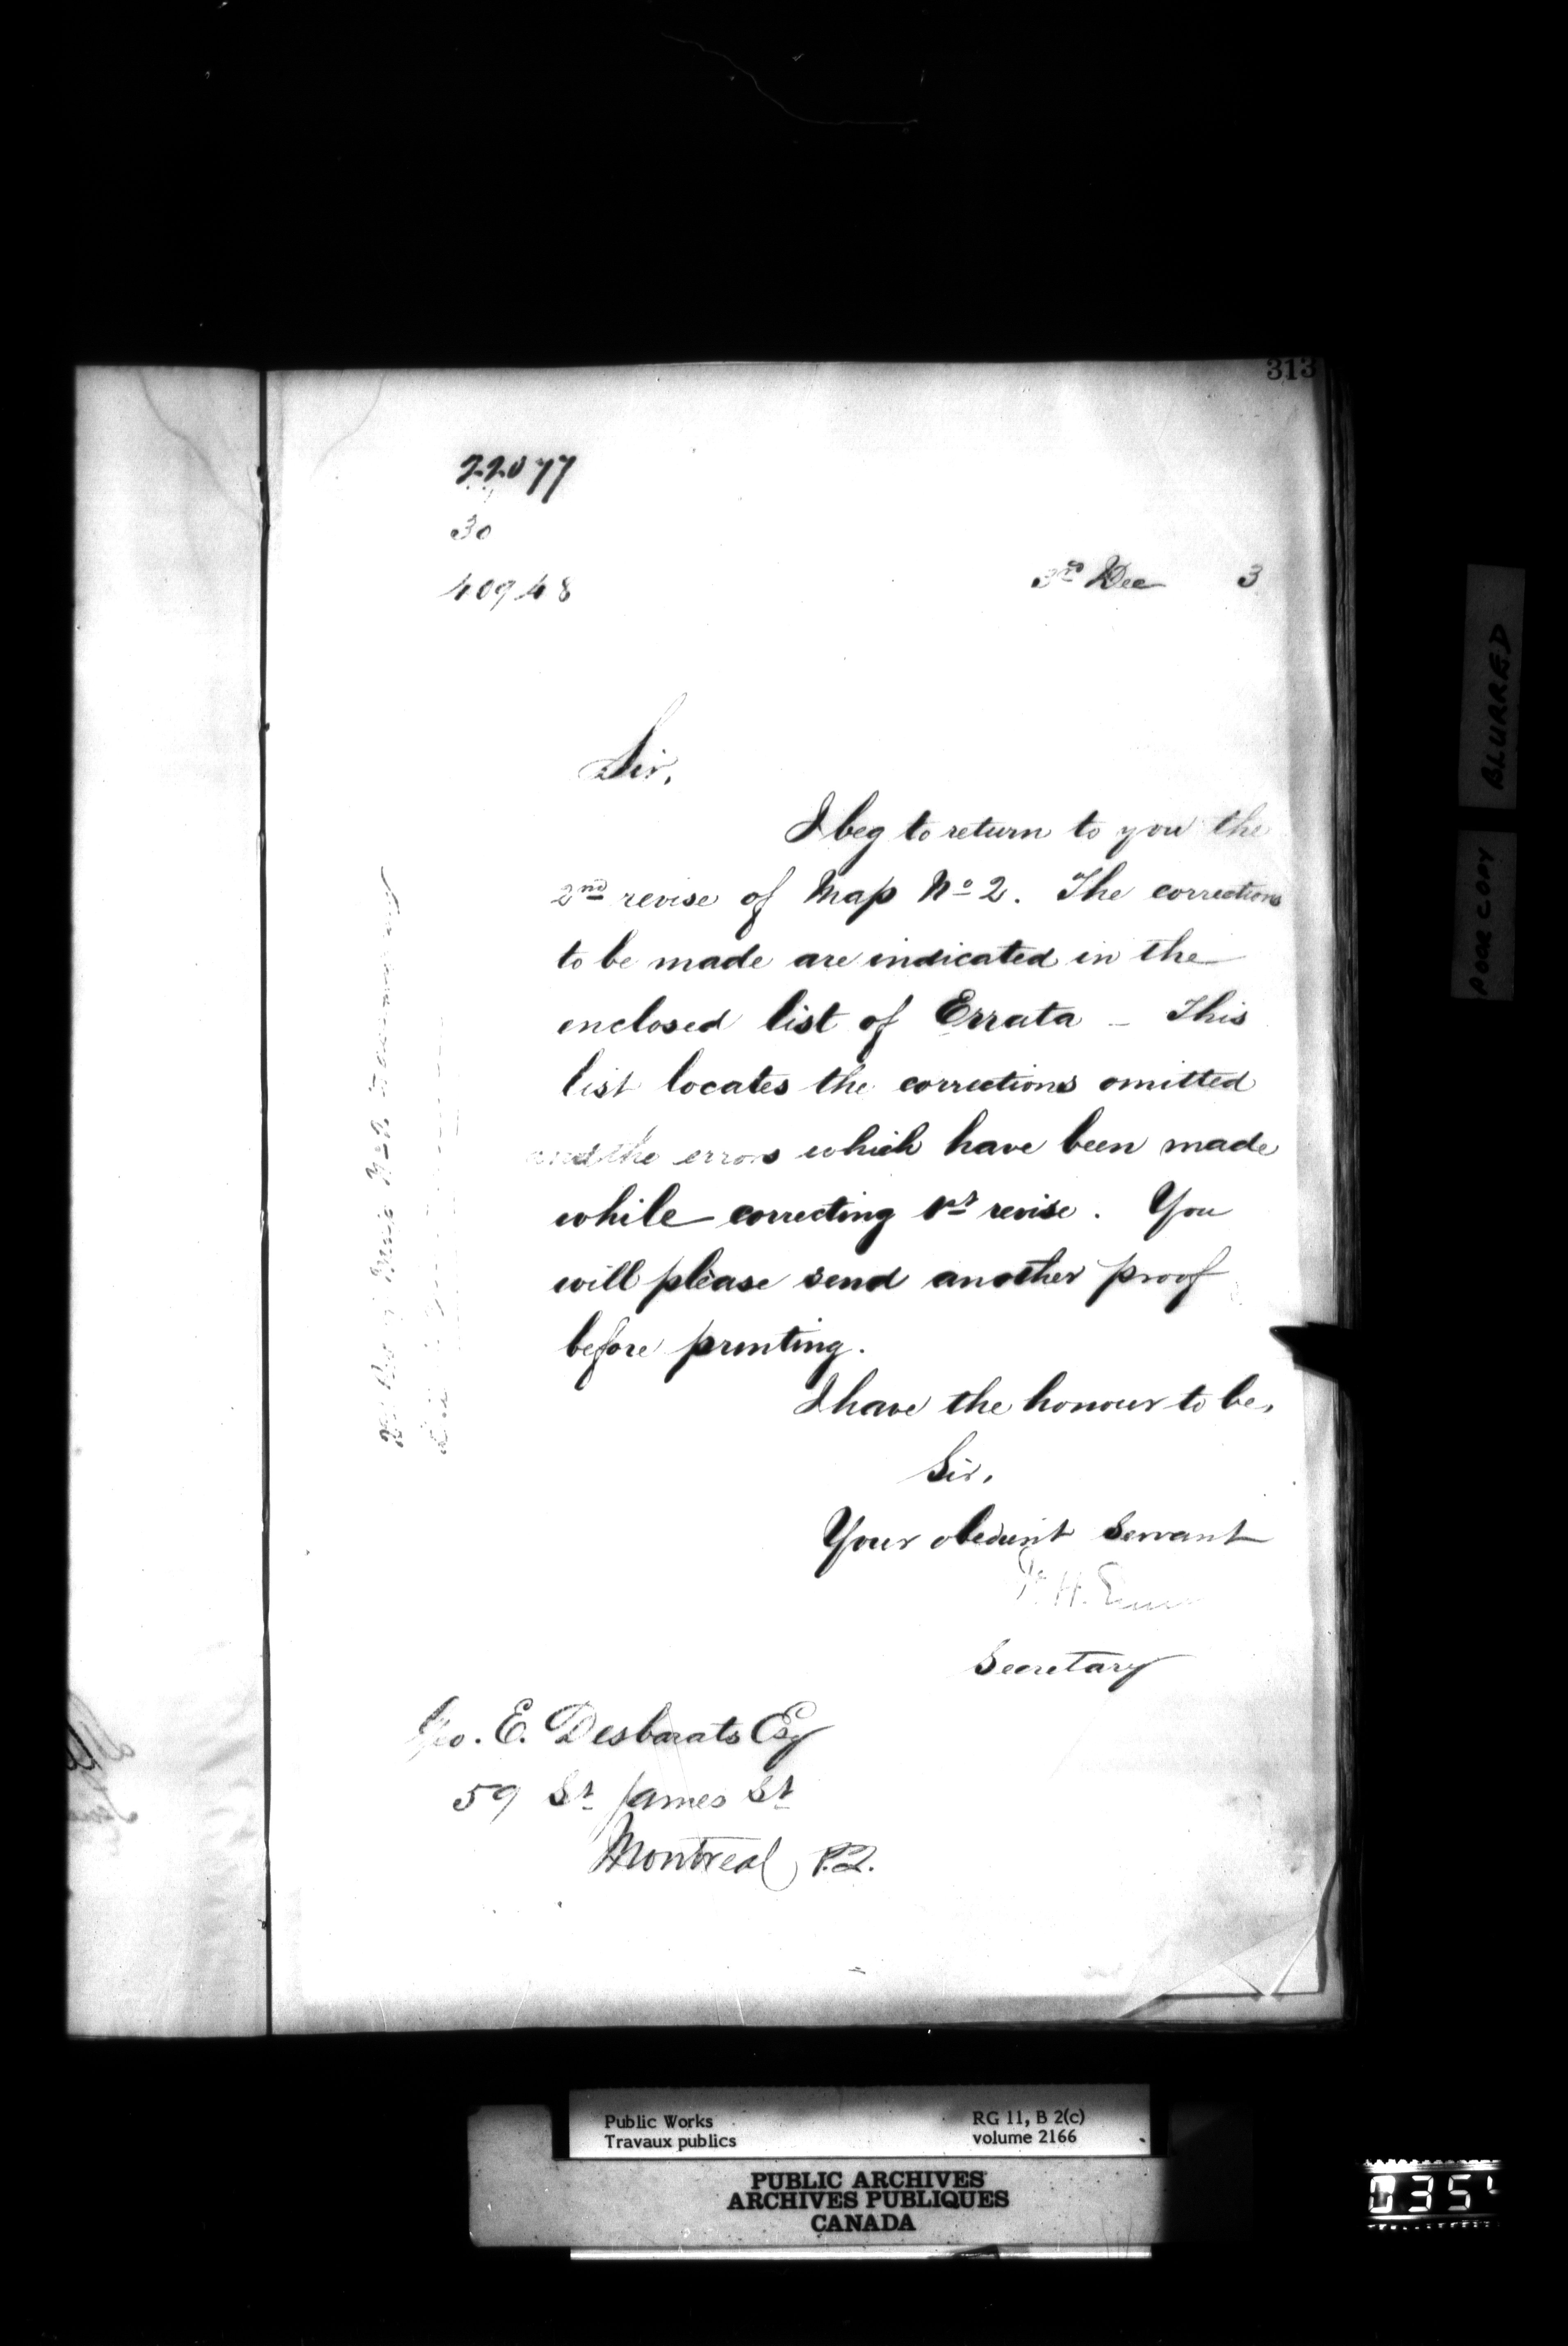 313
22077
30
40948
3rd Dec 3
Sir,
I beg to return to you the
2nd revise of Map No 2. The corrections
to be made are indicated in the
enclosed list of Errata _ This
list locates the corrections omitted
and the errors which have been made
while correcting 1st revise. You
will please send another proof
before printing.
I have the honour to be,
Sir,
Your obedient Servant
Secretary
Geo. E. Desbarats Esq
59 St James St
Montreal P.Q.
BLURRED
POOR COPY
Public Works
Travaux publics
RG 11, B 2(c)
volume 2166
PUBLIC ARCHIVES
ARCHIVES PUBLIQUES
CANADA